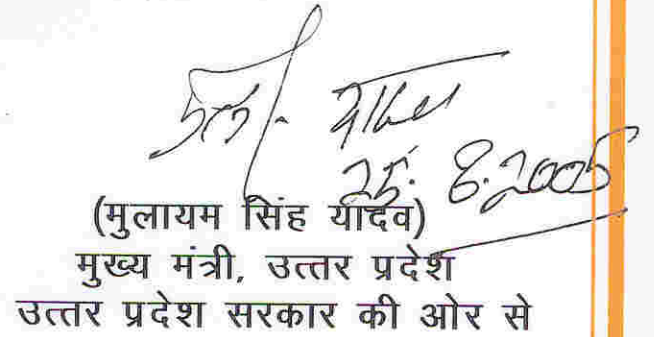 25.8.2005
(मुलायम सिंह यादव)
मुख्य मंत्री, उत्तर प्रदेश
उत्तर प्रदेश सरकार की ओर से